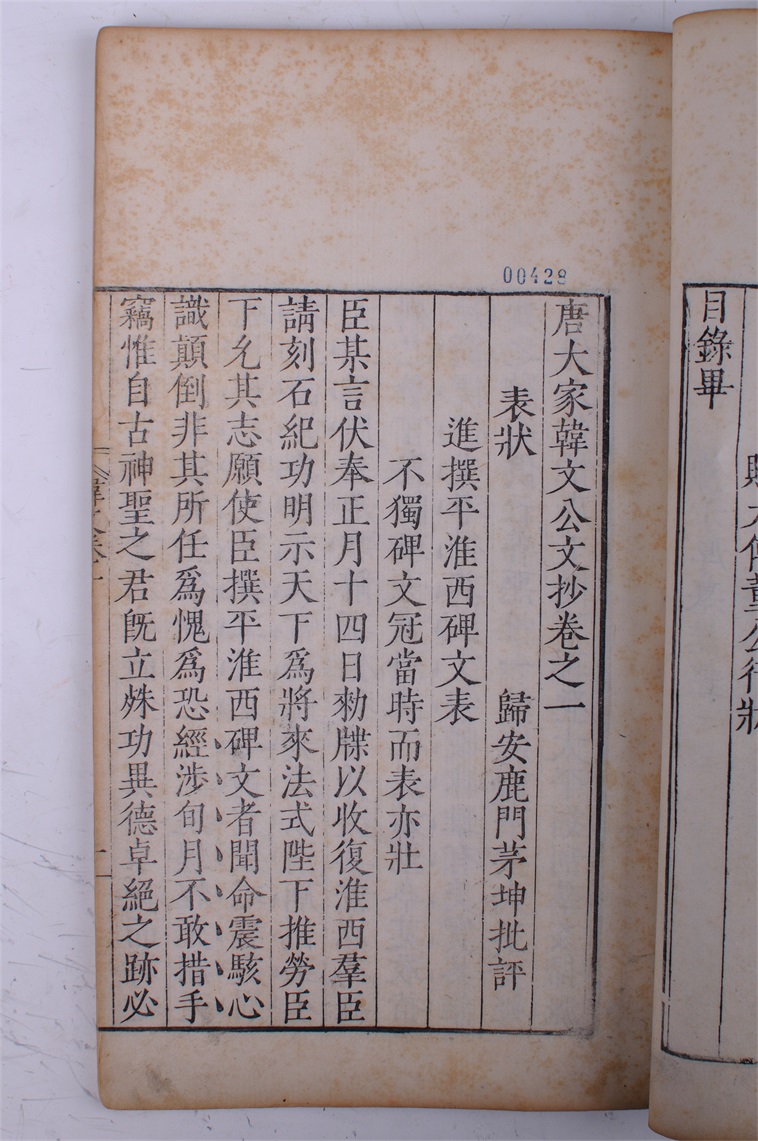 賜太傅董公行狀
目錄畢
00428
唐大家韓文公文抄卷之一
歸安鹿門茅坤批評
表狀
進撰平淮西碑文表
不獨碑文冠當時而表亦壯
臣某言伏奉正月十四日勑牒以收復淮西羣臣
請刻石紀功明示天下爲將來法式陛下推勞臣
下允其志願使臣撰平淮西碑文者聞命震駭心
識顛倒非其所任爲愧爲恐經涉旬月不敢措手
竊惟自古神聖之君旣立殊功異德卓絕之跡必